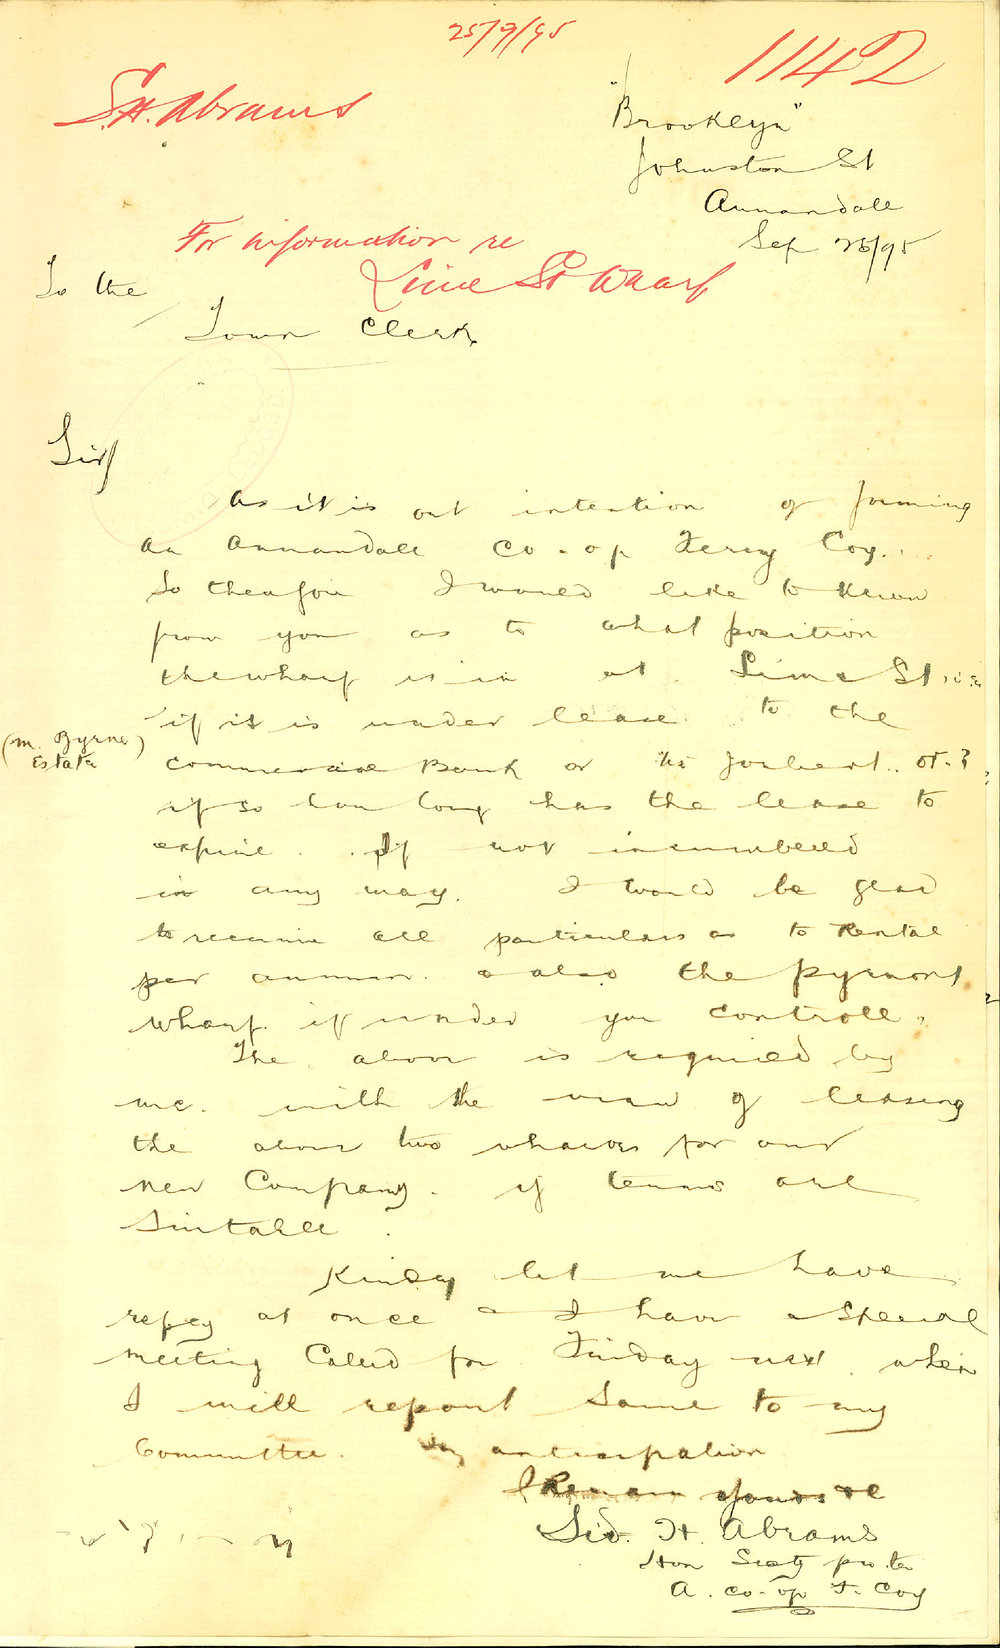 25/9/95
1142
S.H. Abrams
"Brooklyn"
Johnston St
Annandale
Sep 25/95
For information re
Lime St Wharf
To the
Town Clerk
Sir
As it is out intention of forming
An Annandale Co-op Ferry Coy.
So theafore I would like to know
from you as to what position
the wharf is in at Lime St
if it is under lease to the
(M. Byrne)
Estate
commercial Bank or the Joubert
if so how long has the lease to
expire. If not incumbered
in any way. I would be glad
to receive all particulars as to Rental
per annum. & also the pyrmont
wharf. if under you controll.
The above is required by
me. with the view of leasing
the above two wharves for our
new Company. if terms are
Suitable.
Kindly let me have
reply at once as I have a Special
meeting Called for Friday next when
I will report Same to my
Committee. anticipation
I Remain Yours
Sid. H. Abrams
Hon Secty pro tem
A. co-op F. Coy